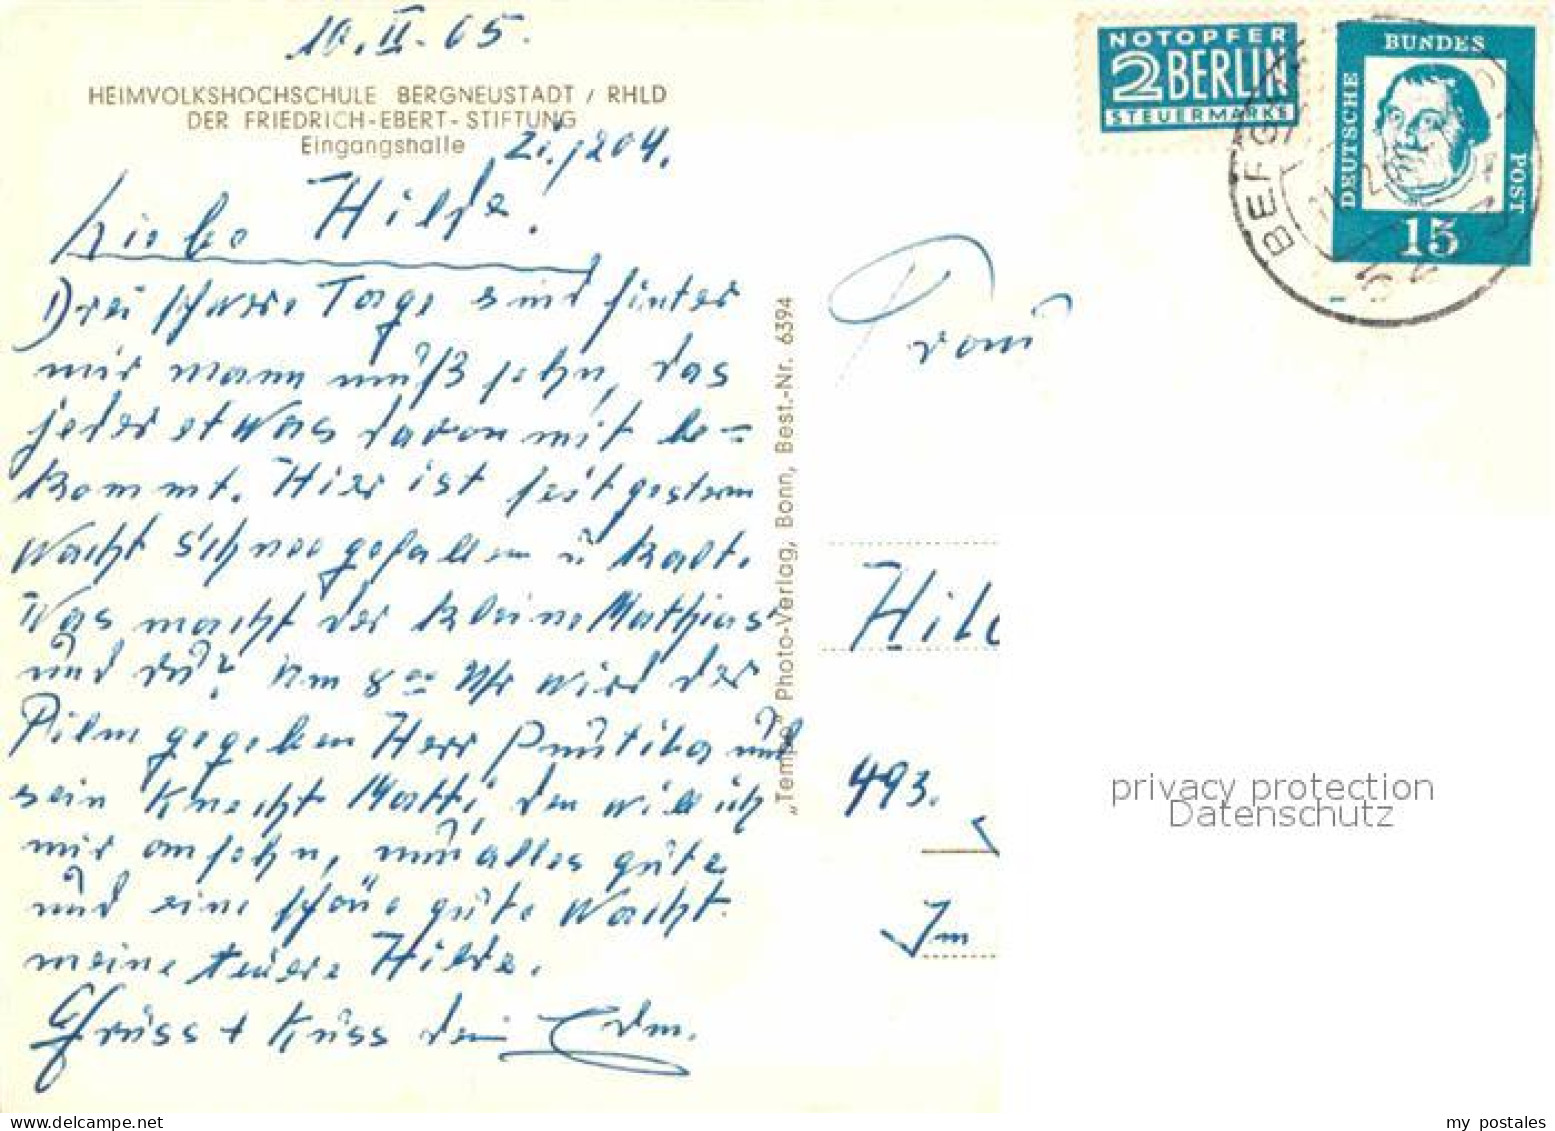 10. II. 65.
HEIMVOLKSHOCHSCHULE BERGNEUSTADT / RHLD
DER FRIEDRICH-EBERT-STIFTUNG
Eingangshalle
Zi./204.
Liebe Hilde.
Drei schwere Tage sind hinter
mir mann muß sehn, das
jeder etwas davon mit be=
kommt. Hier ist seit gestern
Nacht Schnee gefallen u kalt.
Was macht der kleine Mathias
und du? Um 8 00 Uhr wird der
Film gegeben Herr Puntila und
sein Knecht Matti, den will ich
mir ansehn, nun alles gute
und eine schöne gute Nacht.
meine teuere Hilde.
Gruss + Kuss dein Edm.
„Tempo" Photo-Verlag, Bonn, Best.-Nr. 6394
NOTOPFER
2 BERLIN
STEUERMARKE
BUNDES
DEUTSCHE
POST
15
BERG
Frau
Hild
493.
Im
privacy protection
Datenschutz
my postales